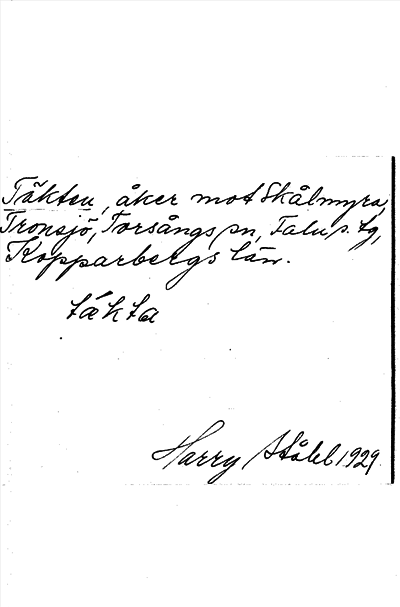 Täkten, åker mot Skålmyra,
Tronsjö, Torsångs sn, Falu s. tg,
Kopparbergs län.
täkta
Harry Ståhl 1929.